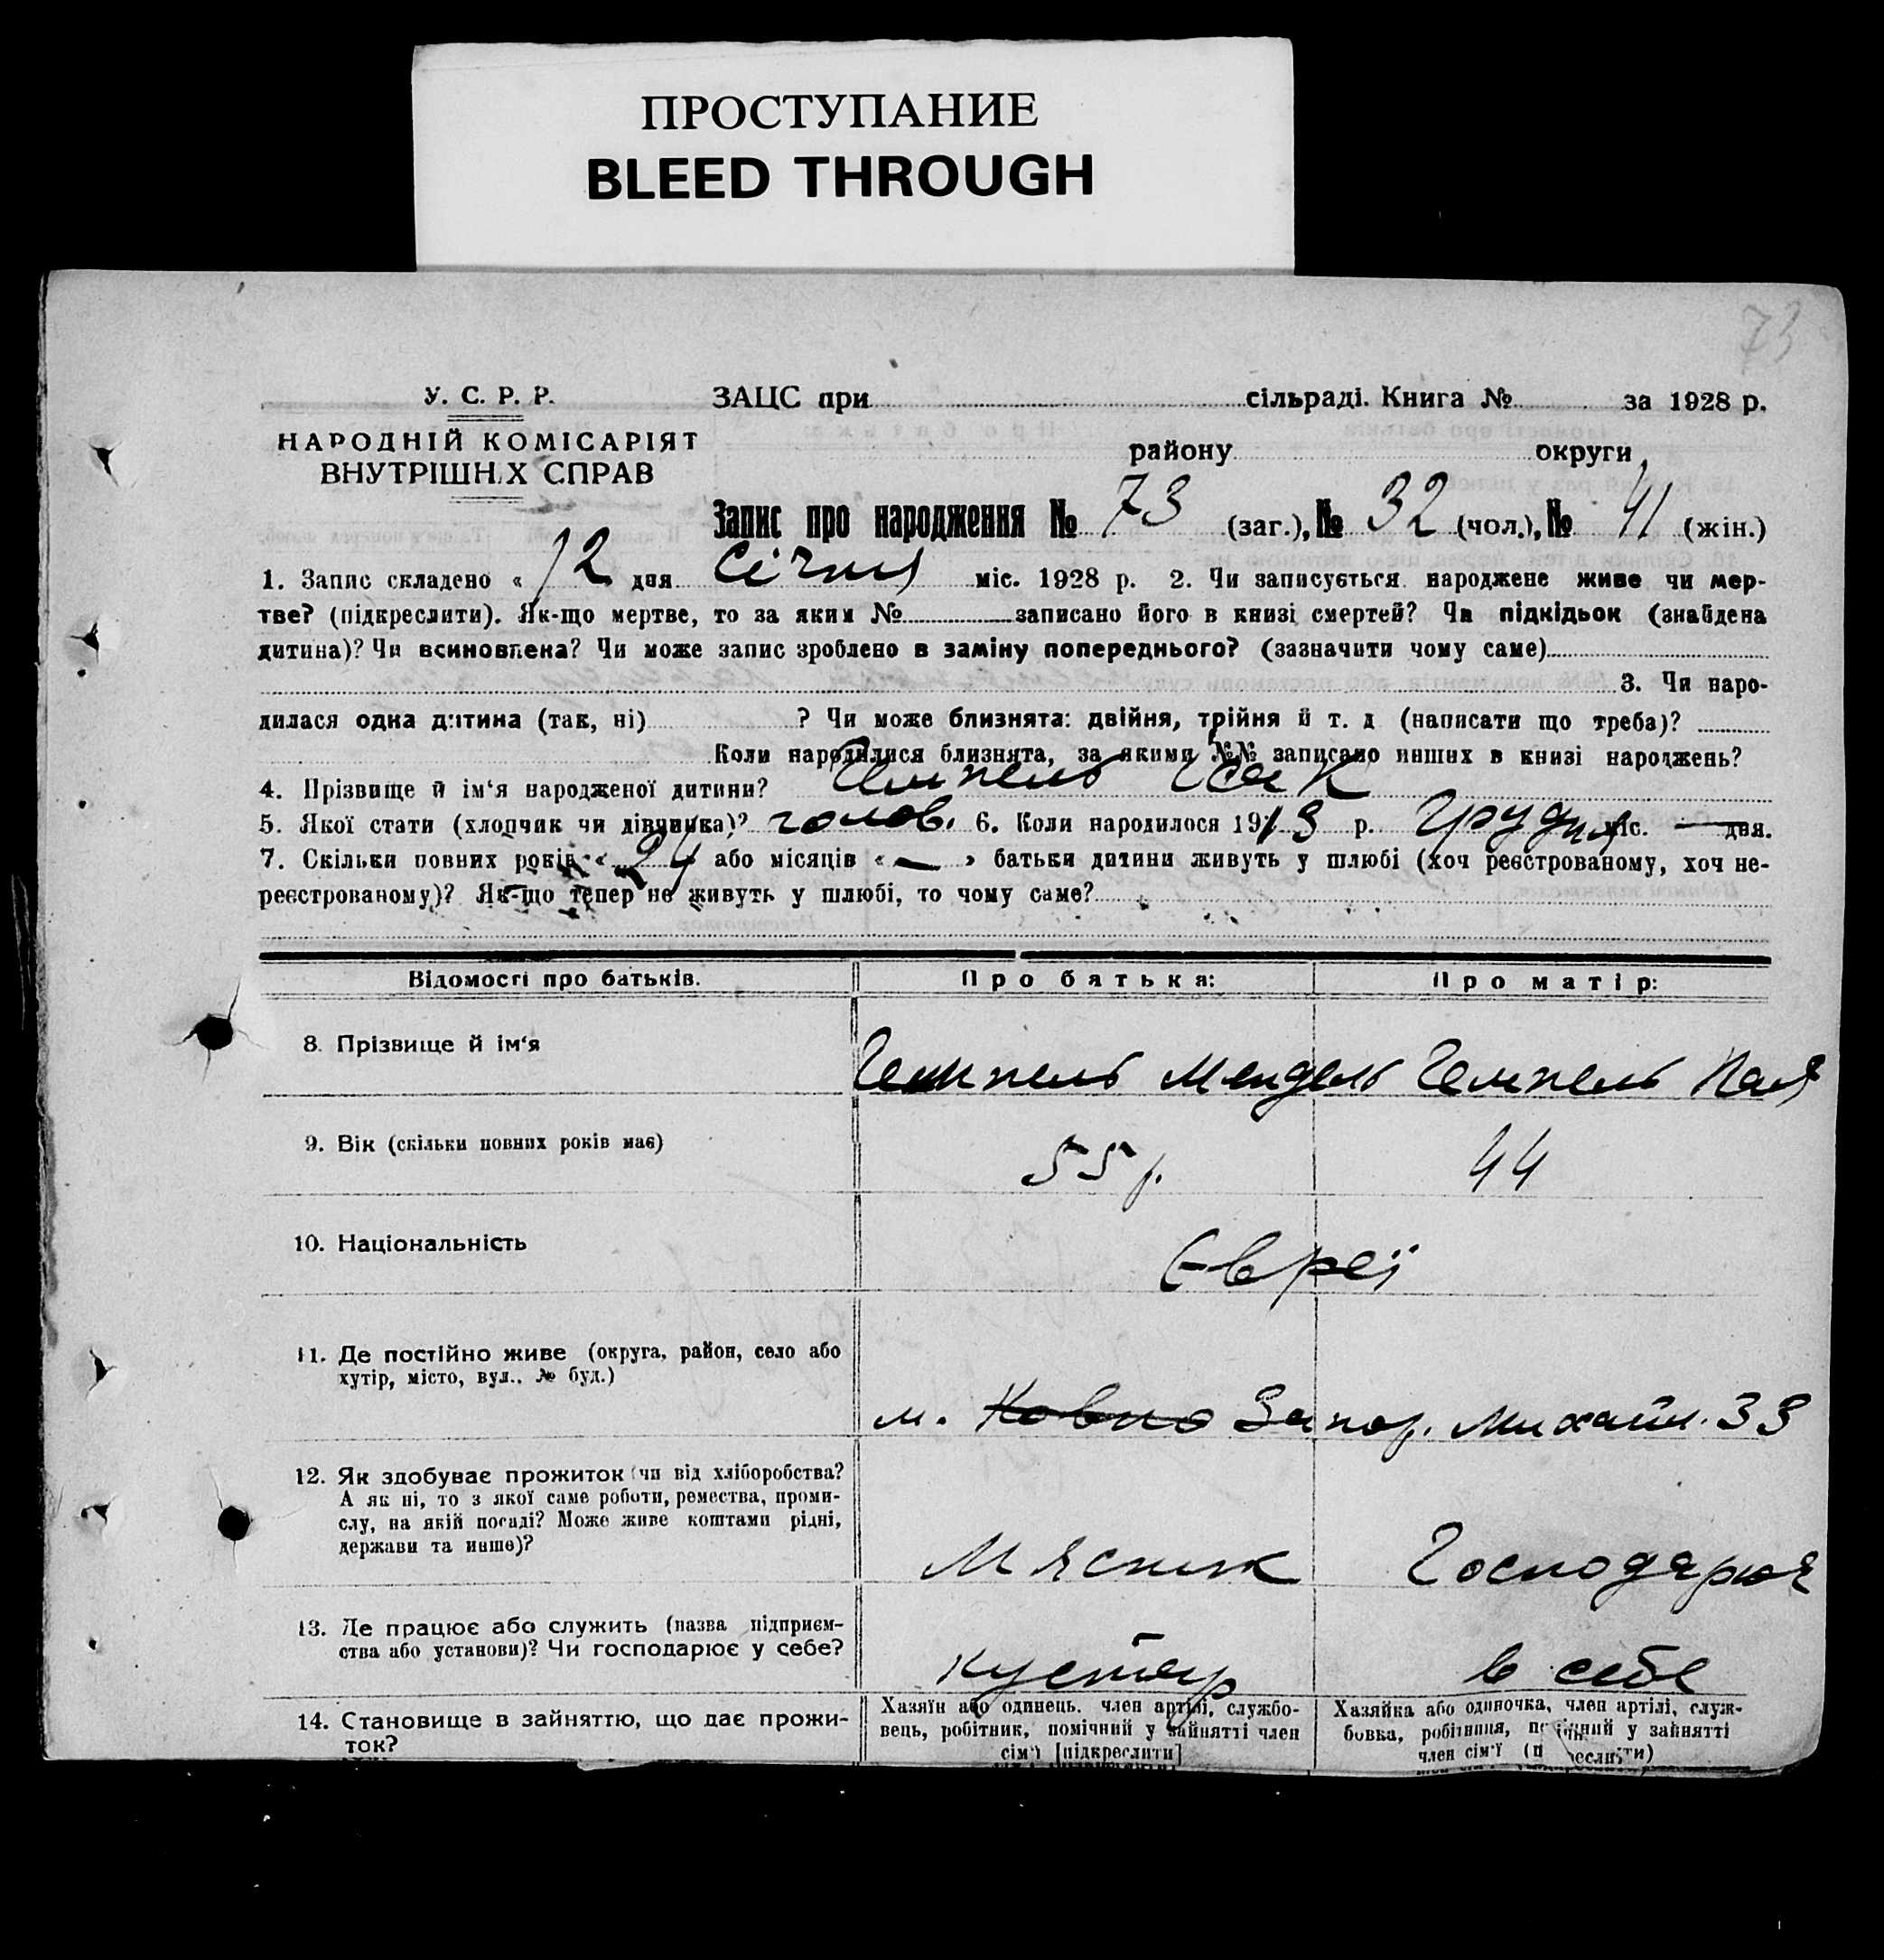 ПРОСТУПАНИЕ
BLEED THROUGH
73
У. С. Р. Р.
НАРОДНІЙ КОМІСАРІЯТ
ВНУТРІШНІХ СПРАВ
ЗАЦС при сільраді. Книга № за 1928 р.
району округи
Запис про народження № 73 (заг.), № 32 (чол.), № 41 (жін.)
1. Запис складено « 12 дня Січня міс. 1928 р. 2. Чи записується народжене живе чи мер-
тве? (підкреслити). Як-що мертве, то за яким № записано його в книзі смертей? Чи підкідьок (знайдена
дитина)? Чи всиновлена? Чи може запис зроблено в заміну попереднього? (зазначити чому саме)
3. Чи наро-
дилася одна дитина (так, ні) ? Чи може близнята: двійня, трійня й т. д (написати що треба)?
Коли народилися близнята, за якими №№ записано инших в книзі народжень?
4. Прізвище й ім'я народженої дитини? Гемпель Ісак
5. Якої стати (хлопчик чи дівчинка)? чолов. 6. Коли народилося 1913 р. Грудня міс. — дня.
7. Скільки повних років « 24 » або місяців « — » батьки дитини живуть у шлюбі (хоч реєстрованому, хоч не-
реєстрованому)? Як-що тепер не живуть у шлюбі, то чому саме?
Відомості про батьків. Про батька: Про матір:
8. Прізвище й ім'я Гемпель Мендель Гемпель Хая
9. Вік (скільки повних років має) 55 р. 44
10. Національність Євреї
11. Де постійно живе (округа, район, село або
хутір, місто, вул., № буд.)
м. Ковно Запор. Михайл. 33
12. Як здобуває прожиток (чи від хліборобства?
А як ні, то з якої саме роботи, ремества, проми-
слу, на якій посаді? Може живе коштами рідні,
держави та инше)?
Мясник Господарює
13. Де працює або служить (назва підприєм-
ства або установи)? Чи господарює у себе?
кустар в себе
14. Становище в зайняттю, що дає прожи-
ток?
Хазяїн або одинець, член артілі, службо-
вець, робітник, помічний у зайнятті член
сім'ї [підкреслити]
Хазяйка або одиночка, член артілі, служ-
бовка, робітниця, помічний у зайнятті
член сім'ї (підкреслити)